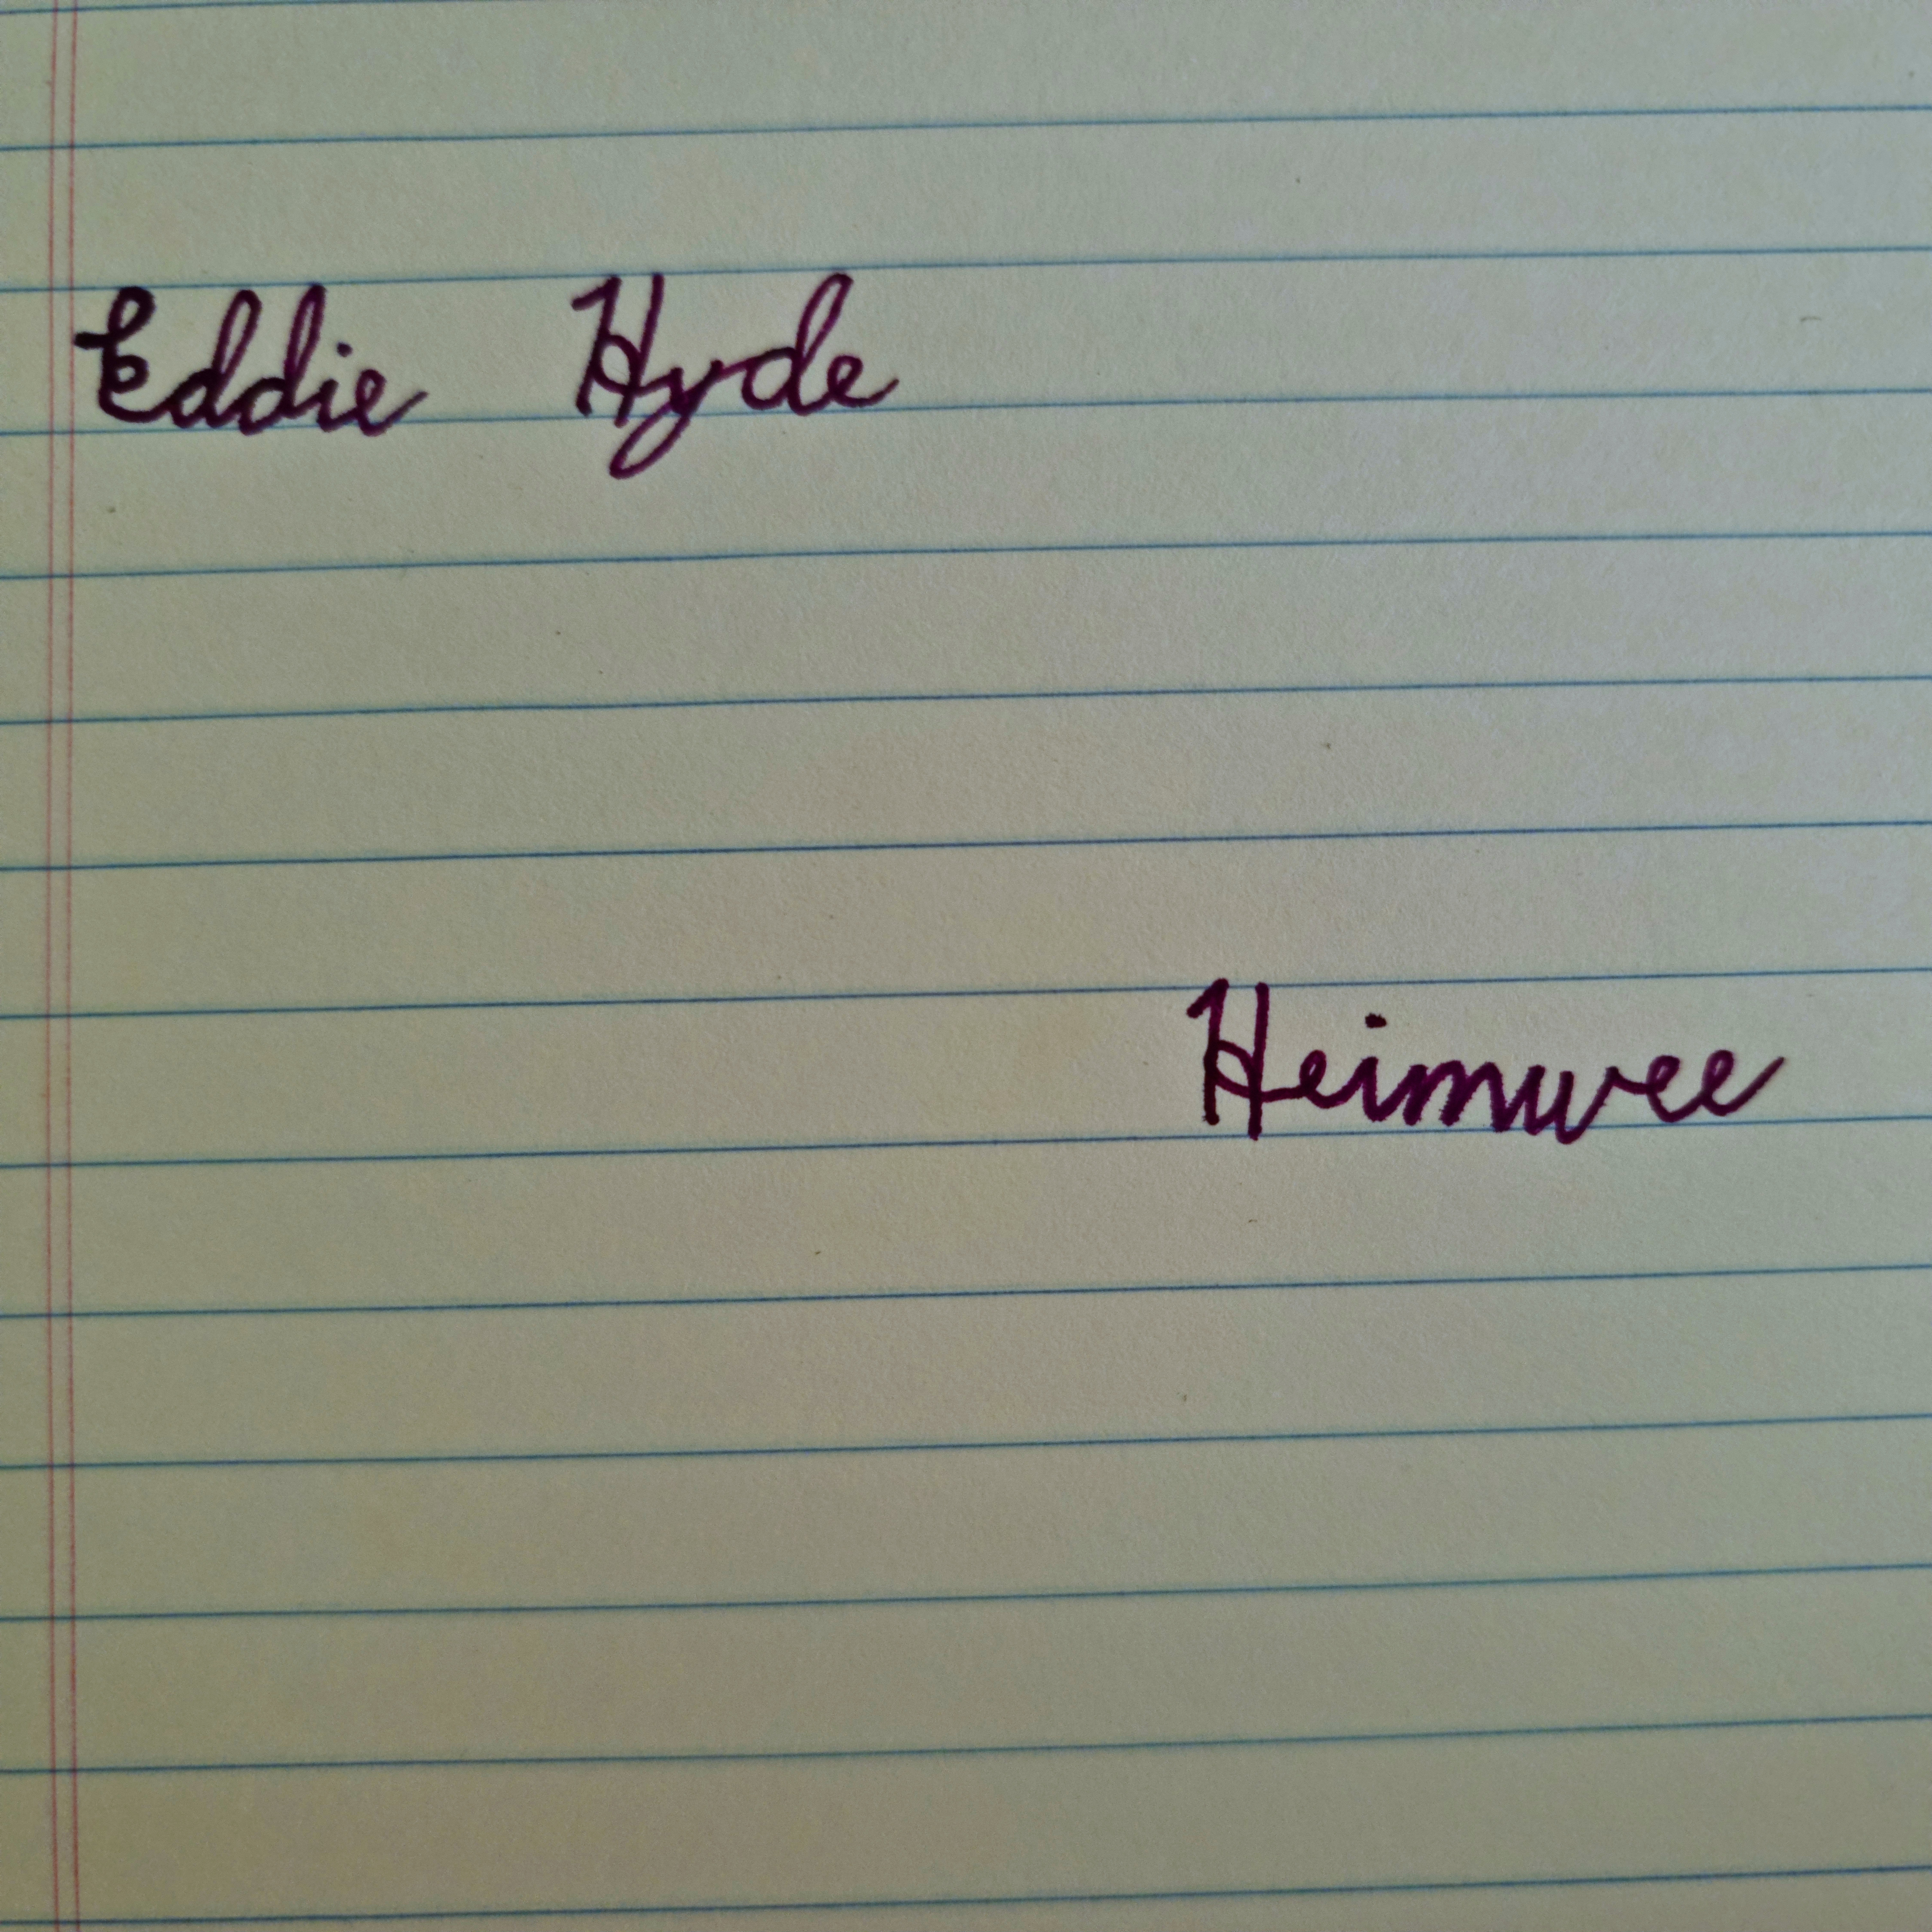 Eddie Hyde
Heimwee